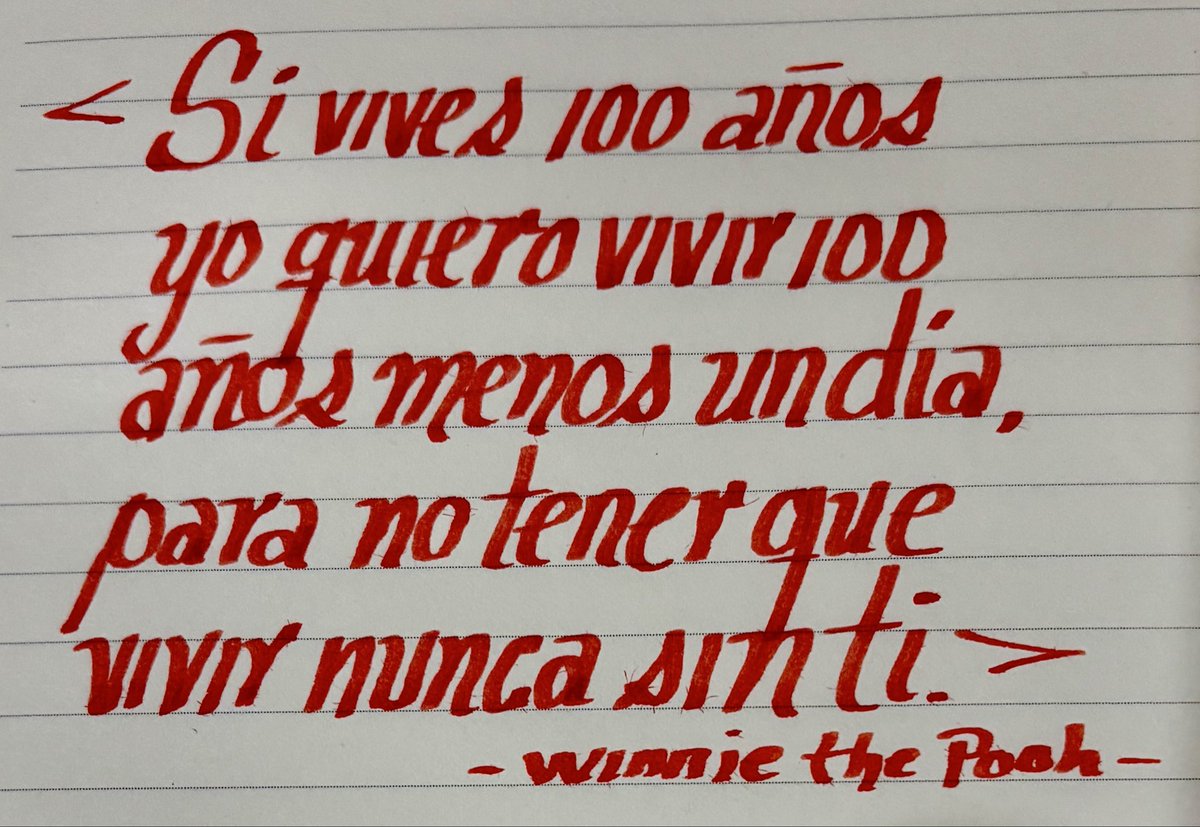 < Si vives 100 años
yo quiero vivir 100
años menos un día,
para no tener que
vivir nunca sin ti. >
- Winnie the Pooh -